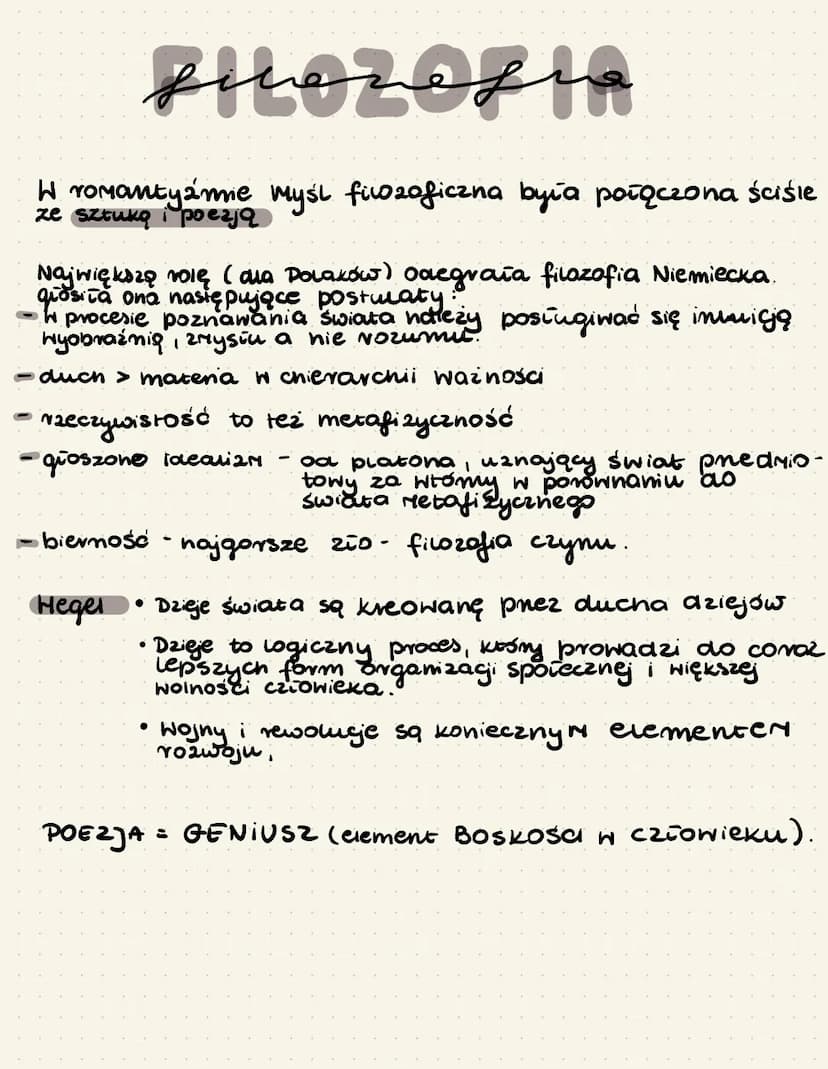 FILOZOFIA
filozofia
W romantyźmie myśl filozoficzna była połączona ściśle
ze sztuką i poezją
Największą rolę (dla Polaków) odegrała filozofia Niemiecka.
głosiła ona następujące postulaty:
- W procesie poznawania świata należy posługiwać się intuicją
wyobraźnią, zmysłu a nie rozumu.
- duch > materia w chierarchii ważności
- rzeczywistość to też metafizyczność
- głoszono idealizm - od platona, uznający świat przedmio-
towy za wtórny w porównaniu do
świata metafizycznego
- bierność - najgorsze zło - filozofia czynu.
Hegel • Dzieje świata są kreowanę przez ducha dziejów
• Dzieje to logiczny proces, który prowadzi do coraz
lepszych form organizacji społecznej i większej
wolności człowieka.
• Wojny i rewolucje są koniecznym elementem
rozwoju.
POEZJA = GENIUSZ (element BOSKOŚCI w człowieku).